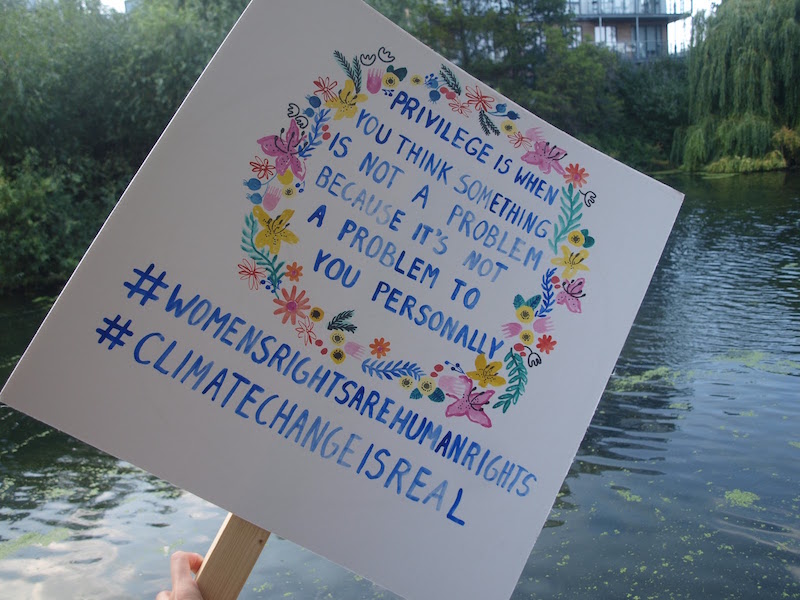 PRIVILEGE IS WHEN
YOU THINK SOMETHING
IS NOT A PROBLEM
BECAUSE IT'S NOT
A PROBLEM TO
YOU PERSONALLY
#WOMENSRIGHTSAREHUMANRIGHTS
#CLIMATECHANGEISREAL